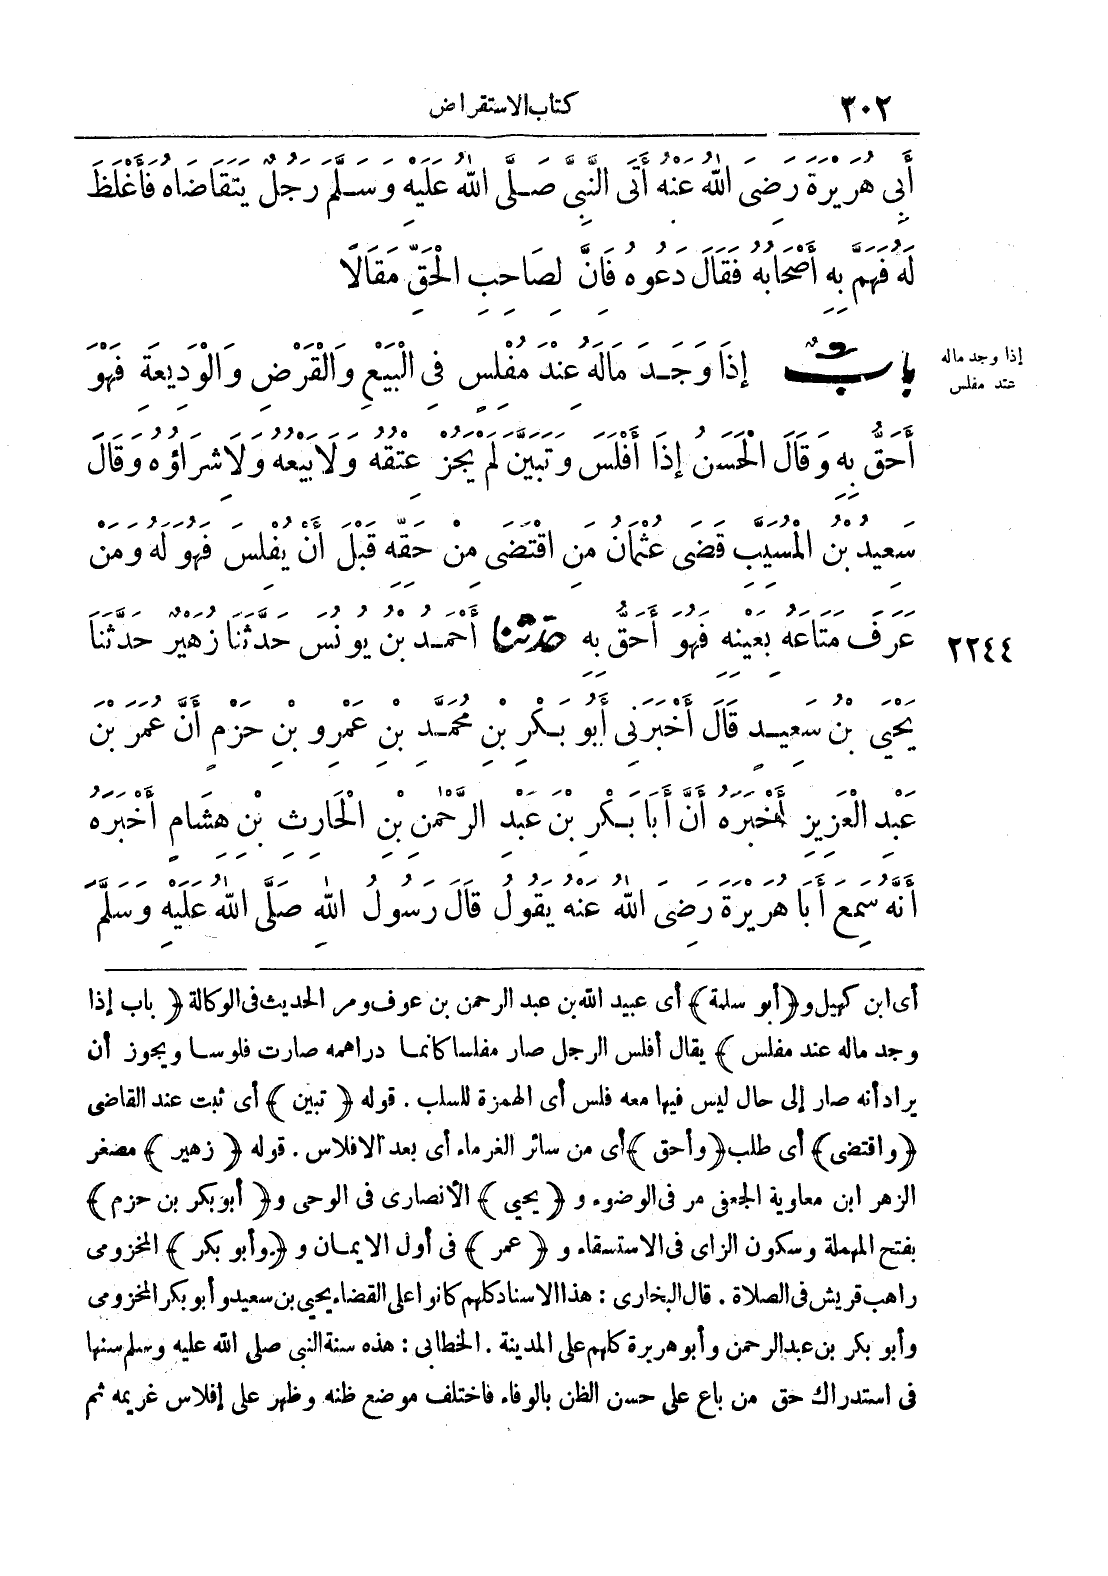 ٣٠٢ كتاب الاستقراض
أَبِي هُرَيْرَةَ رَضِيَ اللهُ عَنْهُ أَتَى النَّبِيَّ صَلَّى اللهُ عَلَيْهِ وَسَلَّمَ رَجُلٌ يَتَقَاضَاهُ فَأَغْلَظَ
لَهُ فَهَمَّ بِهِ أَصْحَابُهُ فَقَالَ دَعُوهُ فَإِنَّ لِصَاحِبِ الْحَقِّ مَقَالًا
إذا وجد ماله
عند مفلس
بَابٌ إِذَا وَجَدَ مَالَهُ عِنْدَ مُفْلِسٍ فِي الْبَيْعِ وَالْقَرْضِ وَالْوَدِيعَةِ فَهْوَ
أَحَقُّ بِهِ وَقَالَ الْحَسَنُ إِذَا أَفْلَسَ وَتَبَيَّنَ لَمْ يَجُزْ عِتْقُهُ وَلَا بَيْعُهُ وَلَا شِرَاؤُهُ وَقَالَ
سَعِيدُ بْنُ الْمُسَيِّبِ قَضَى عُثْمَانُ مَنِ اقْتَضَى مِنْ حَقِّهِ قَبْلَ أَنْ يُفْلِسَ فَهُوَ لَهُ وَمَنْ
٢٢٤٤ عَرَفَ مَتَاعَهُ بِعَيْنِهِ فَهُوَ أَحَقُّ بِهِ حَدَّثَنَا أَحْمَدُ بْنُ يُونُسَ حَدَّثَنَا زُهَيْرٌ حَدَّثَنَا
يَحْيَى بْنُ سَعِيدٍ قَالَ أَخْبَرَنِي أَبُو بَكْرِ بْنُ مُحَمَّدِ بْنِ عَمْرِو بْنِ حَزْمٍ أَنَّ عُمَرَ بْنَ
عَبْدِ الْعَزِيزِ أَخْبَرَهُ أَنَّ أَبَا بَكْرِ بْنَ عَبْدِ الرَّحْمٰنِ بْنِ الْحَارِثِ بْنِ هِشَامٍ أَخْبَرَهُ
أَنَّهُ سَمِعَ أَبَا هُرَيْرَةَ رَضِيَ اللهُ عَنْهُ يَقُولُ قَالَ رَسُولُ اللهِ صَلَّى اللهُ عَلَيْهِ وَسَلَّمَ
أى ابن كهيل و﴿أبو سلمة﴾ أى عبيد الله بن عبد الرحمن بن عوف ومر الحديث فى الوكالة ﴿ باب إذا
وجد ماله عند مفلس ﴾ يقال أفلس الرجل صار مفلسا كانما دراهمه صارت فلوسا ويجوز أن
يراد أنه صار إلى حال ليس فيها معه فلس أى الهمزة للسلب . قوله ﴿ تبين ﴾ أى ثبت عند القاضى
﴿واقتضى﴾ أى طلب ﴿وأحق﴾ أى من سائر الغرماء أى بعد الافلاس . قوله ﴿ زهير ﴾ مصغر
الزهر ابن معاوية الجعفى مر فى الوضوء و ﴿ يحيى ﴾ الأنصارى فى الوحى و﴿ أبو بكر بن حزم ﴾
بفتح المهملة وسكون الزاى فى الاستسقاء و ﴿ عمر ﴾ فى أول الايمان و ﴿وأبو بكر ﴾ المخزومى
راهب قريش فى الصلاة . قال البخارى : هذا الاسناد كلهم كانوا على القضاء يحيى بن سعيد وأبو بكر المخزومى
وأبو بكر بن عبدالرحمن وأبو هريرة كلهم على المدينة . الخطابى : هذه سنة النبى صلى الله عليه وسلم سنها
فى استدراك حق من باع على حسن الظن بالوفاء فاختلف موضع ظنه وظهر على إفلاس غريمه ثم